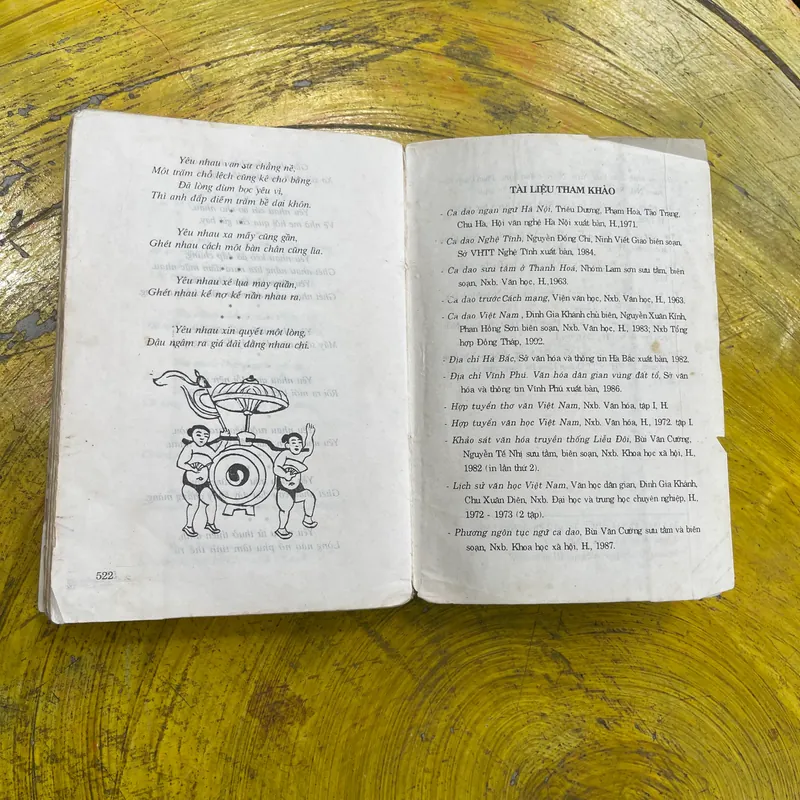 Yêu nhau vạn sự chẳng nề,
Một trăm chỗ lệch cũng kê cho bằng.
Đã lòng đùm bọc yêu vì,
Thì anh đắp điếm trăm bề dại khôn.
Yêu nhau xa mấy cũng gần,
Ghét nhau cách một bàn chân cũng lìa.
Yêu nhau xé lụa may quần,
Ghét nhau kể nợ kể nần nhau ra,
Yêu nhau xin quyết một lòng,
Đậu ngâm ra giá dài dằng nhau chi.
522
TÀI LIỆU THAM KHẢO
- Ca dao ngạn ngữ Hà Nội, Triêu Dương, Phạm Hòa, Tảo Trang,
Chu Hà, Hội văn nghệ Hà Nội xuất bản, H.,1971.
- Ca dao Nghệ Tĩnh, Nguyễn Đổng Chi, Ninh Viết Giao biên soạn,
Sở VHTT Nghệ Tĩnh xuất bản, 1984.
- Ca dao sưu tầm ở Thanh Hoá, Nhóm Lam sơn sưu tầm, biên
soạn, Nxb. Văn học, H.,1963.
- Ca dao trước Cách mạng, Viện văn học, Nxb. Văn học, H.,1963.
- Ca dao Việt Nam , Đinh Gia Khánh chủ biên, Nguyễn Xuân Kính,
Phan Hồng Sơn biên soạn, Nxb. Văn học, H., 1983; Nxb Tổng
hợp Đồng Tháp, 1992.
- Địa chí Hà Bắc, Sở văn hóa và thông tin Hà Bắc xuất bản, 1982.
- Địa chí Vĩnh Phú. Văn hóa dân gian vùng đất tổ, Sở văn
hóa và thông tin Vĩnh Phú xuất bản, 1986.
- Hợp tuyển thơ văn Việt Nam, Nxb. Văn hóa, tập I, H.
- Hợp tuyển văn học Việt Nam, Nxb. Văn hóa, H., 1972. tập I.
- Khảo sát văn hóa truyền thống Liễu Đôi, Bùi Văn Cường,
Nguyễn Tế Nhị sưu tầm, biên soạn, Nxb. Khoa học xã hội, H.,
1982 (in lần thứ 2).
- Lịch sử văn học Việt Nam, Văn học dân gian, Đinh Gia Khánh,
Chu Xuân Diên, Nxb. Đại học và trung học chuyên nghiệp, H.,
1972 - 1973 (2 tập).
- Phương ngôn tục ngữ ca dao, Bùi Văn Cường sưu tầm và biên
soạn, Nxb. Khoa học xã hội, H., 1987.